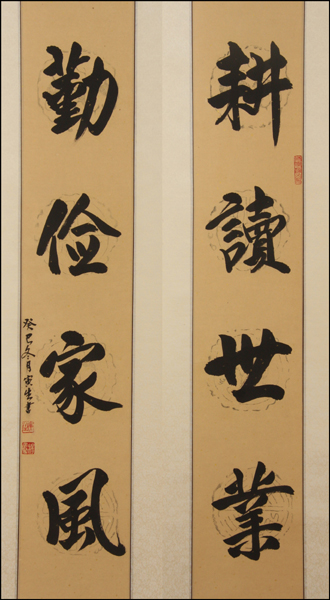 耕讀世業
勤俭家風
癸巳冬月寅生書